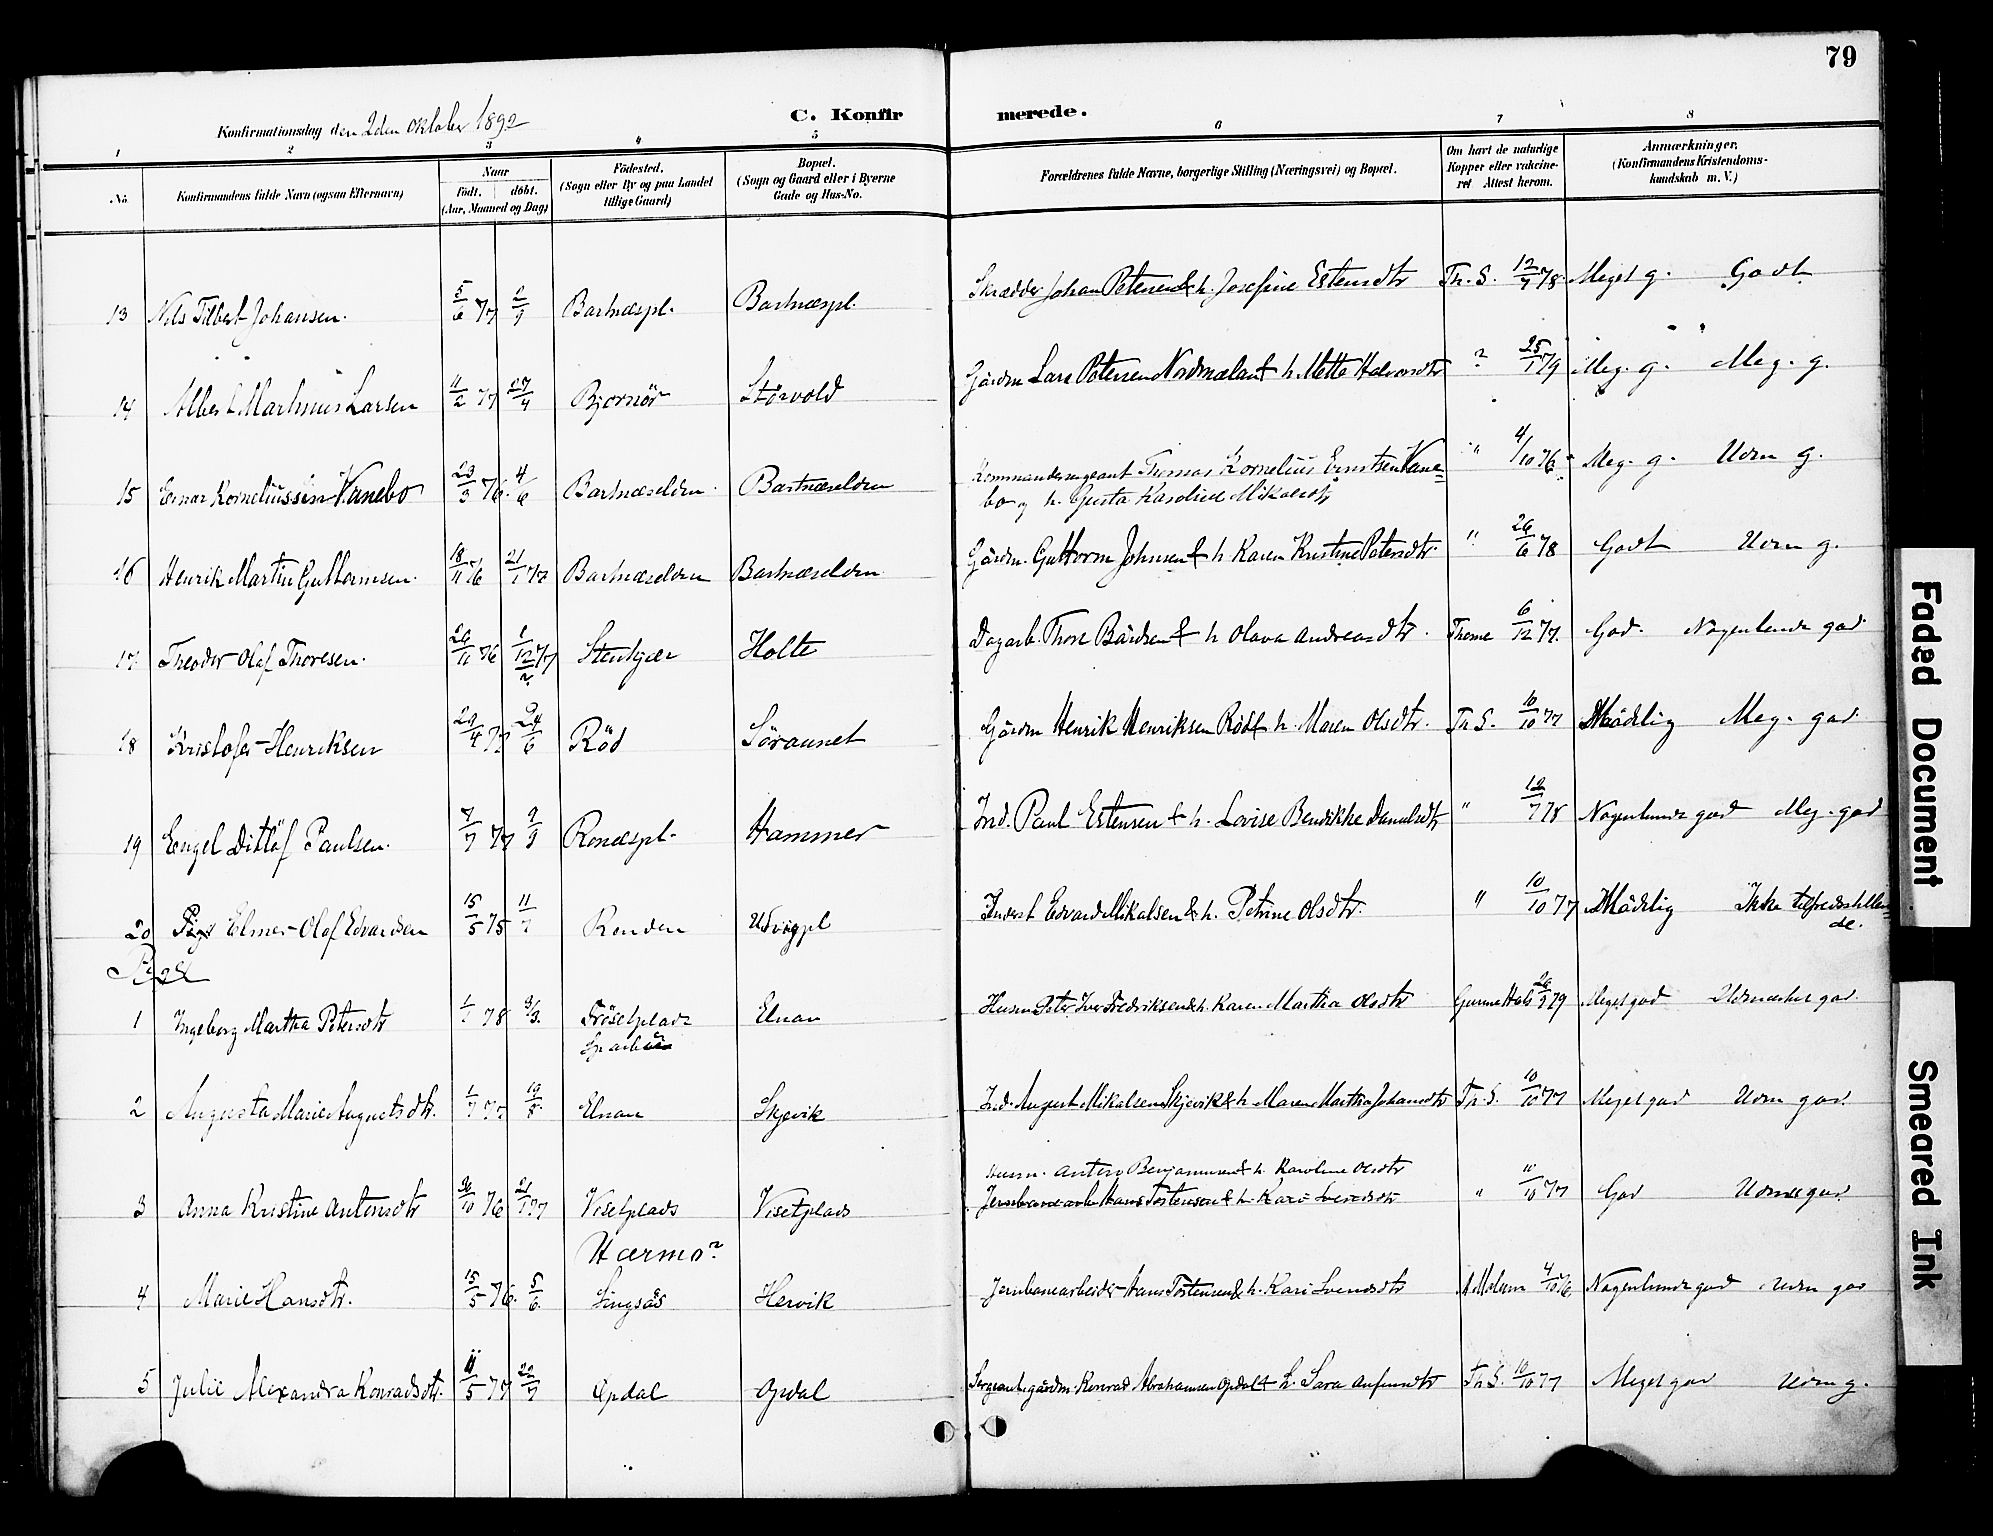 79
C. Konfirmerede.
Konfirmationsdag den 2den Oktober 1892
1 2 3 4 5 6 7 8
No. Konfirmandens fulde Navn (ogsaa Efternavn) Naar födt. döbt. (Aar, Maaned og Dag) Födested. (Sogn eller By og paa Landet tillige Gaard) Bopæl. (Sogn og Gaard eller i Byerne Gade og Hus-No. Forældrenes fulde Navne, borgerlige Stilling (Næringsvei) og Bopæl. Om havt de naturlige Kopper eller vakcineret Attest herom. Anmærkninger. (Konfirmandens Kristendomskundskab m. V.)
13 Nils Tilbert Johansen. 5/6 77 Bartnæspl. Bartnæspl. Skrædder Johan Petersen & h. Josefine Estensdtr Th. S. 12/9 78. Meget g. Godt
14 Albert Martinius Larsen 11/2 77 Bjornör Størvold Gårdm Lars Petersen Nordmelan & h. Mette Halvorsdtr " 25/1 79 Meg. g. Meg. g.
15 Einar Korneliussen Vanebo 23/3 76. 4/6 Bartnæselden Bartnæselden Kommandersergeant Tomas Kornelius Erntsen Vane=
bo og h. Gusta Karoline Mikalsdtr " 4/10 76 Meg. g. Udm g.
16 Henrik Martin Guttormsen. 18/11 76 21/1 77 Bartnæselden Bartnæselden Gårdm. Guttorm Johnsen & h Karen Kristine Petersdtr. " 26/6 78 Godt Udm g.
17 Theodor Olof Thoresen. 76 Stenkjær Holte Dagarb. Thore Bårdsen & h Olava Andreasdtr. Thome 6/12 77. God. Nogenlunde god
18 Kristofer Henriksen 77 24/6 Röd Söraunet Gårdm Henrik Henriksen Röd & h. Maren Olsdtr. Th S. 10/10 77 Mådelig Meg. god
19 Engel Ditlöf Paulsen. 7/7 77 9/9 Rendspl. Hammer Ind. Paul Estensen & h. Lovise Bendikke Danielsdtr " 12/7 78 Nogenlunde god Meg. god
20 Elmer Olof Edvardsen 15/5 75 11/7 Renden Udvigpl Inderst Edvard Mikalsen & h. Petrine Olsdtr. " 10/10 77 Mådelig Ikke tilfredsstillen=
de.
1 Ingeborg Martha Petersdtr 1/1 78 Frösetplads
Sparbu Elnan Husm Peter Iver Fredriksen & h. Karen Martha Olsdtr 79 Meget god Udmærket god
2 Augusta Marie Augustsdtr. 1/7 77 19/8 Elnan Skjevik Ind. August Mikalsen Skjevik & h Maren Martha Johansdtr Th. S. 10/10 77 Meget god Udm god
3 Anna Kristine Antonsdtr 76 21/1 77 Visetplads Visetplads Husm. Anton Benjaminsen & h. Karoline Olsdtr
Jernbanearb. Hans Tostensen & h. Kari Svendsdtr " 11/10 77 God Udm god
4 Marie Hansdtr. 15/5 76. 5/6 Hærmo?
Singsås Hervik Jernbanearbeider Hans Tostensen & h. Kari Svendsdtr 4/10 76 Nogenlunde god Udm god
5 Julie Alexandra Konradsdtr. 11/5 77 22/7 Opdal Opdal Sergeant & gårdm. Konrad Abrahamsen Opdal & h. Sara Anfinnsdtr Th S. 10/10 77 Meget god Udm g.
Faded Document
Smeared Ink